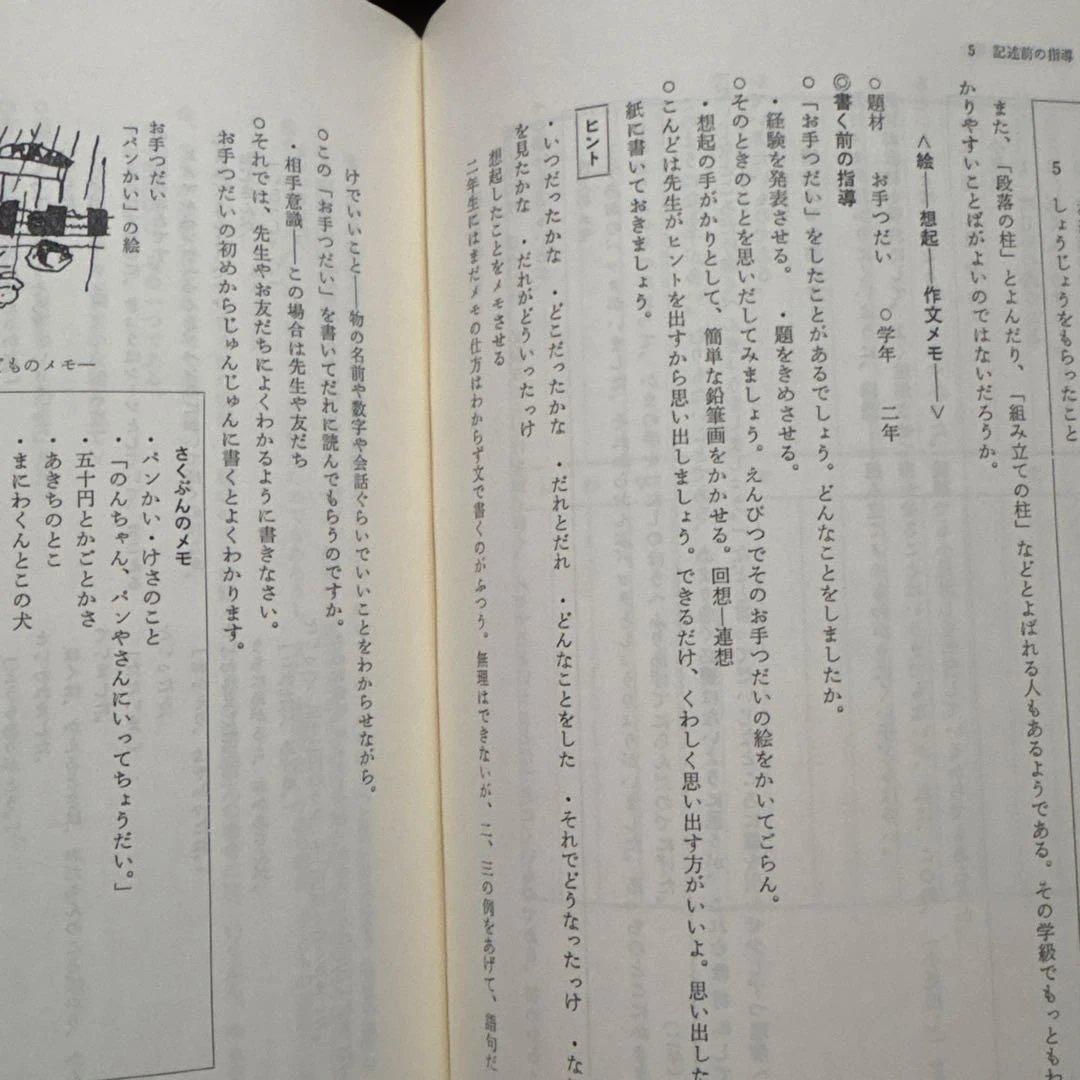 5 記述前の指導
5 しょうじょうをもらったこと
また、「段落の柱」とよんだり、「組み立ての柱」などとよばれる人もあるようである。その学級でもっともわ
かりやすいことばがよいのではないだろうか。
<絵――想起――作文メモ――>
○題材 お手つだい ○学年 二年
◎書く前の指導
○「お手つだい」をしたことがあるでしょう。どんなことをしましたか。
・経験を発表させる。 ・題をきめさせる。
○そのときのことを思いだしてみましょう。えんぴつでそのお手つだいの絵をかいてごらん。
・想起の手がかりとして、簡単な鉛筆画をかかせる。回想―連想
○こんどは先生がヒントを出すから思い出しましょう。できるだけ、くわしく思い出す方がいいよ。思い出した
紙に書いておきましょう。
ヒント
・いつだったかな ・どこだったかな ・だれとだれ ・どんなことをした ・それでどうなったっけ ・な
を見たかな ・だれがどういったっけ
想起したことをメモさせる
二年生にはまだメモの仕方はわからず文で書くのがふつう。無理はできないが、二、三の例をあげて、語句だ
けでいいこと――物の名前や数字や会話ぐらいでいいことをわからせながら。
○この「お手つだい」を書いてだれに読んでもらうのですか。
・相手意識――この場合は先生や友だち
○それでは、先生やお友だちによくわかるように書きなさい。
お手つだいの初めからじゅんじゅんに書くとよくわかります。
お手つだい
「パンかい」の絵
どものメモ―
さくぶんのメモ
・パンかい・けさのこと
・「のんちゃん、パンやさんにいってちょうだい。」
・五十円とかごとかさ
・あきちのとこ
・まにわくんとこの犬